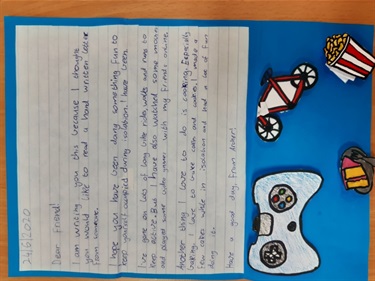 24/6/2020
Dear friend!
I am writing you this because I thought
you would like to read a hand written letter
from someone.
I hope you have been doing something fun to
keep yourself occupied during isolation. I have been
I've gone on lots of long bike rides, walks and runs to
keep active. But I have also watched some movies
and played some video games with my friends online.
Another thing I love to do is cooking. Especially
baking. I love to make cakes and cookies. I made a
few cakes while in isolation and had a lot of fun
doing it.
Have a good day, from